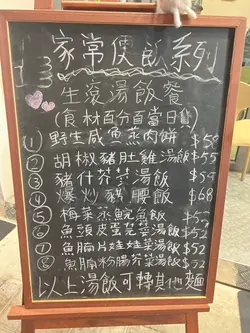 家常便飯系列
生滾湯飯餐
(食材百分百當日)
① 野生咸魚蒸肉餅 $58
② 胡椒豬肚雞湯飯 $55
③ 豬什芥菜湯飯 $59
④ 爆炒豬腰飯 $68
⑤ 梅菜蒸鯇魚飯
⑥ 魚頭皮蛋芫荽湯飯 $52
⑦ 魚腩片娃娃菜湯飯 $52
⑧ 魚腩粉腸芥菜湯飯 $52
以上湯飯可轉其他麵